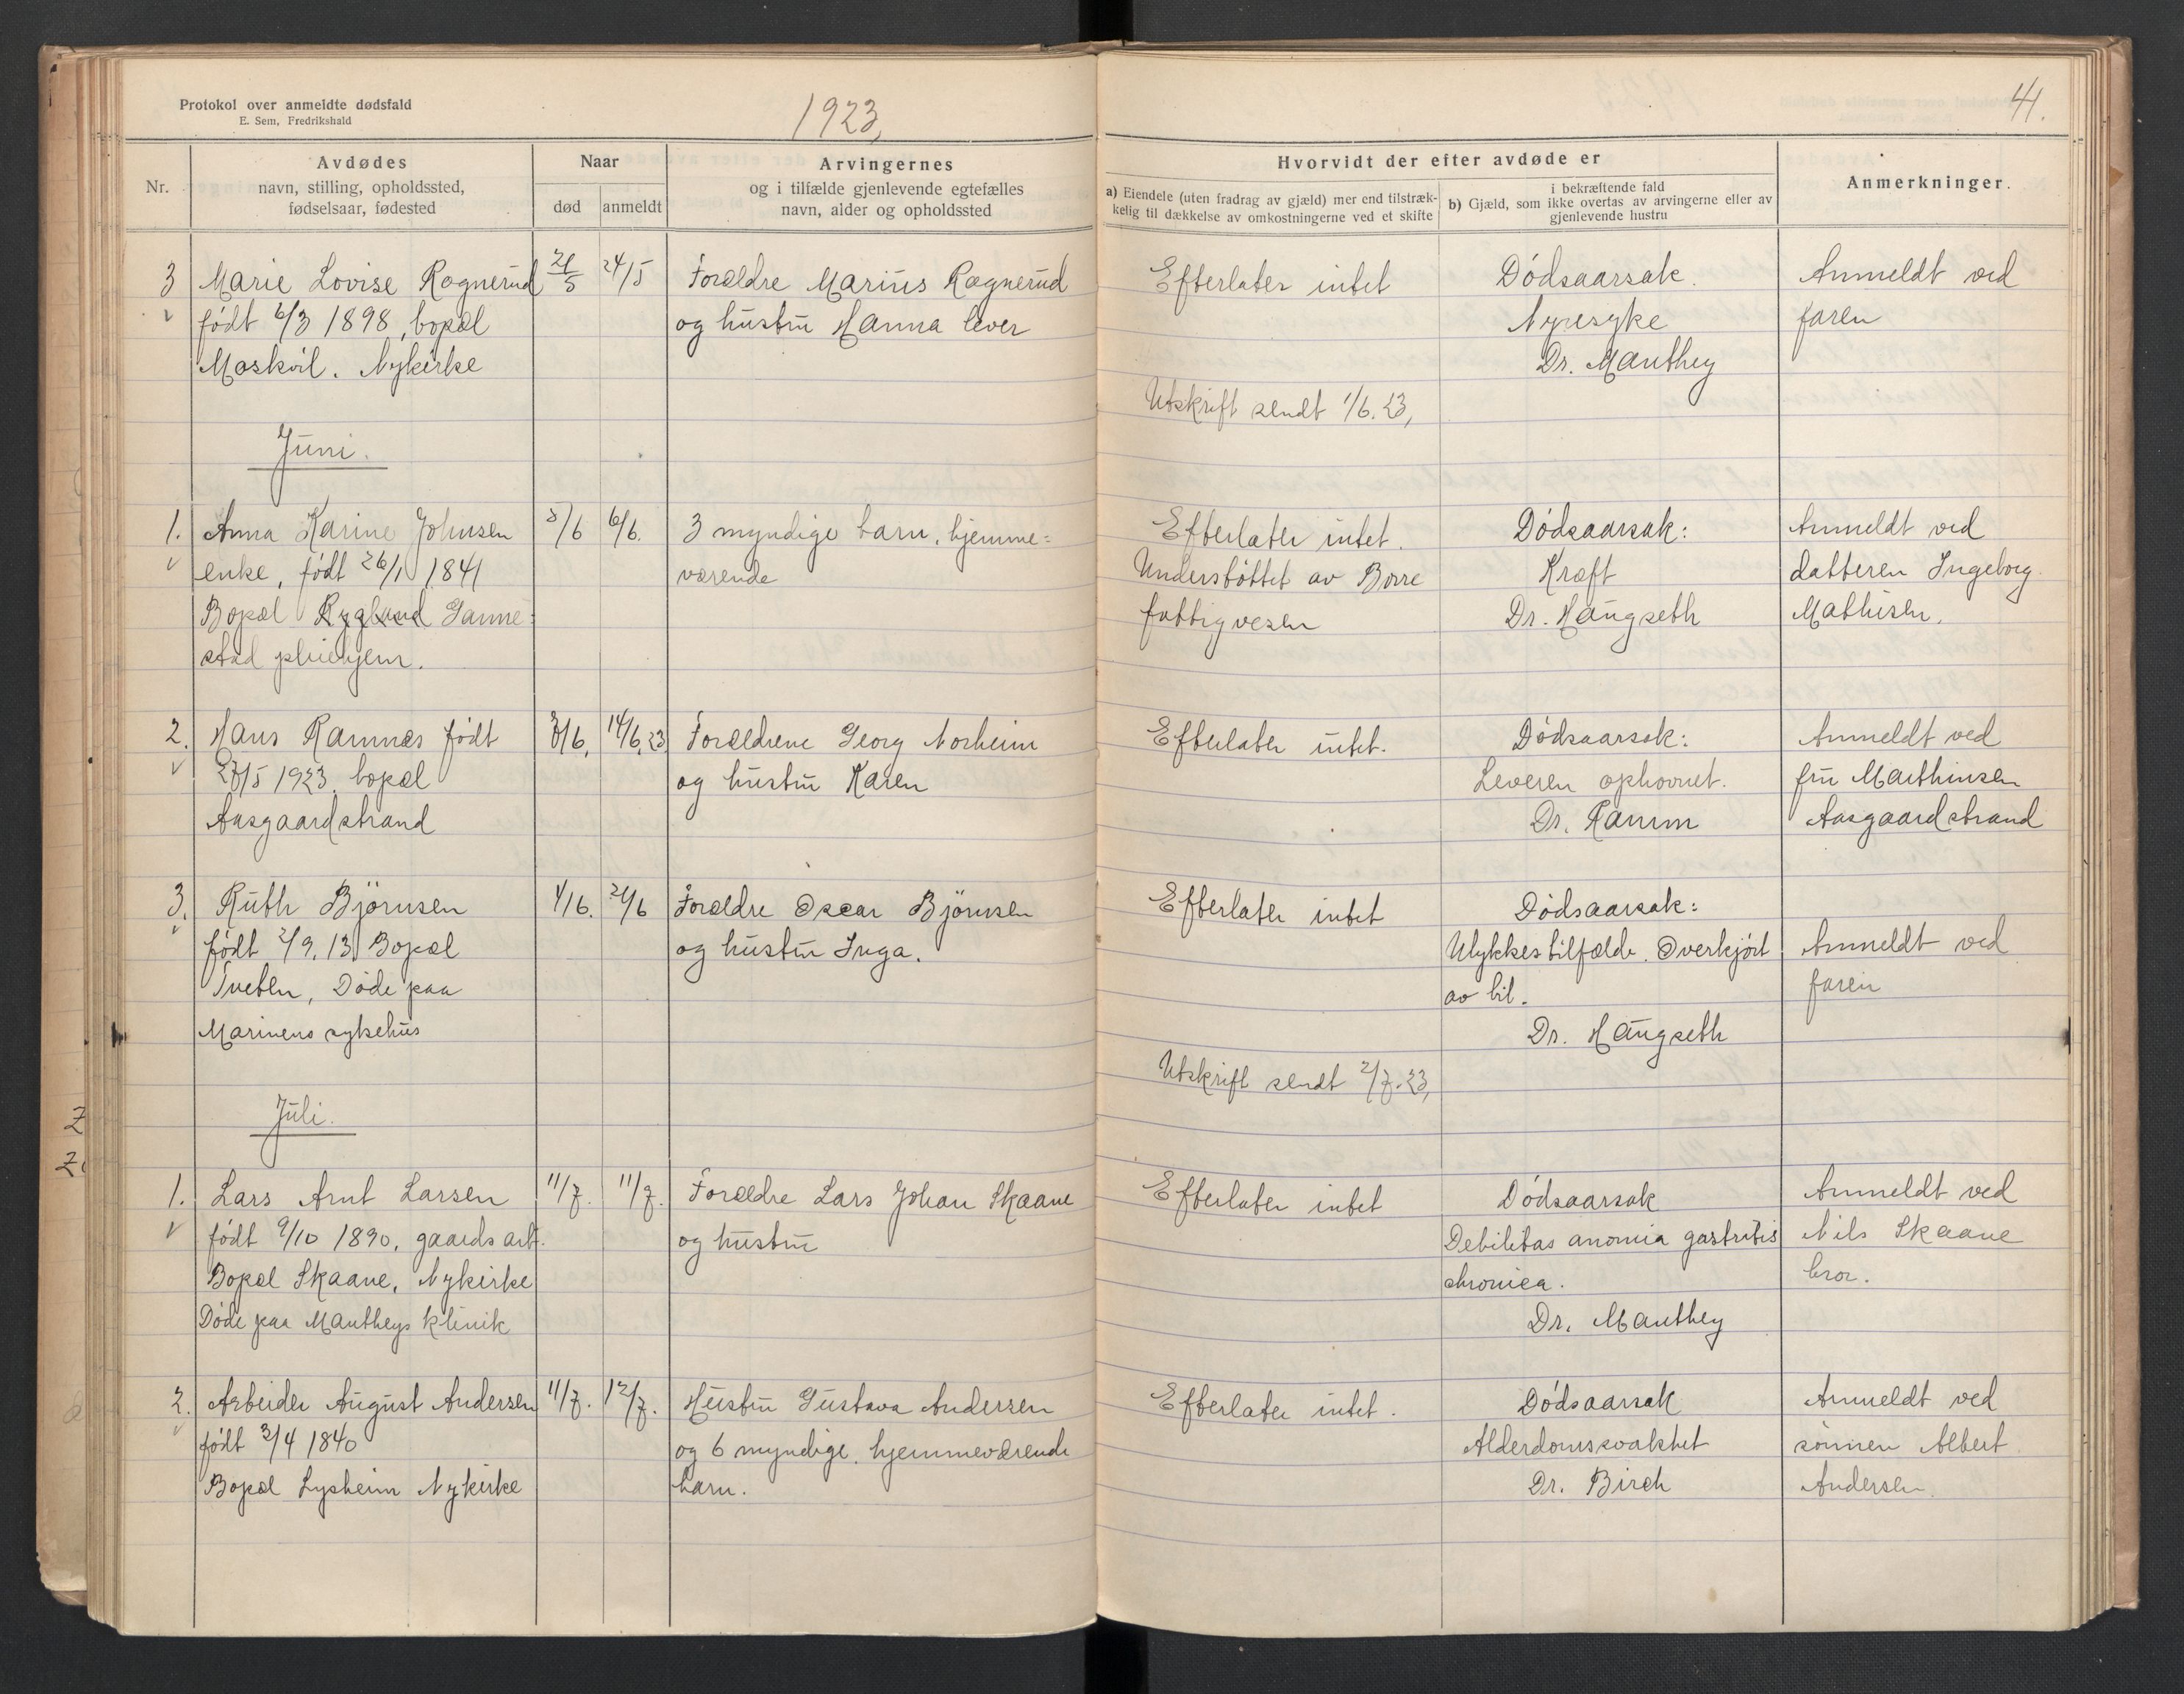 Protokol over anmeldte dødsfald
E. Sem, Fredrikshald
1923,
41.
Nr.
Avdødes
navn, stilling, opholdssted,
fødselsaar, fødested
Naar
død
anmeldt
Arvingernes
og i tilfælde gjenlevende egtefælles
navn, alder og opholdssted
Hvorvidt der efter avdøde er
a) Eiendele (uten fradrag av gjæld) mer end tilstræk-
kelig til dækkelse av omkostningerne ved et skifte
i bekræftende fald
b) Gjæld, som ikke overtas av arvingerne eller av
gjenlevende hustru
Anmerkninger.
3 Marie Lovise Ragnerud 21/5 24/5 Forældre Marius Ragnerud Efterlater intet Dødsaarsak. Anmeldt ved
født 6/3 1898, bopæl og hustru Hanna lever Nyresyke faren
Moskvil. Nykirke Dr. Manthey
Utskrift sendt 1/6.23,
Juni.
1. Anna Karine Johnsen 5/6 6/6. 3 myndige barn, hjemme= Efterlater intet. Dødsaarsak: Anmeldt ved
enke, født 26/1 1841 værende Understøttet av Borre Kræft datteren Ingeborg
Bopæl Rygland Ganne= fattigvesen Dr. Haugseth Mathisen.
stad pleiehjem.
2. Hans Ramnes født 3/6, 14/6,23 Forældrene Georg Norheim Efterlater intet. Dødsaarsak: Anmeldt ved
27/5 1923, bopæl og hustru Karen Leveren ophovnet. fru Marthinsen
Aasgaardstrand Dr. Ramm Aasgaardstrand
3. Ruth Bjørnsen 4/6. 21/6 Forældre Oscar Bjørnsen Efterlater intet Dødsaarsak:
født 2/9.13 Bopæl og hustru Inga. Ulykkestilfælde. Overkjørt Anmeldt ved
Tveten, Døde paa av bil. faren
Marinens sykehus Dr. Haugseth
Utskrift sendt 2/7.23,
Juli.
1. Lars Arnt Larsen 11/7. 11/7. Forældre Lars Johan Skaane Efterlater intet Dødsaarsak Anmeldt ved
født 9/10 1890, gaardsarb. og hustru Debilitas anomia gastritis Nils Skaane
Bopæl Skaane, Nykirke chronica. bror.
Døde paa Mantheys klinik Dr. Manthey
2. Arbeider August Andersen 11/7. 12/7. Hustru Gustava Andersen Efterlater intet. Dødsaarsak Anmeldt ved
født 3/4 1840 og 6 myndige, hjemmeværende Alderdomssvakhet sønnen Albert
Bopæl Lysheim Nykirke barn. Dr. Birch Andersen.